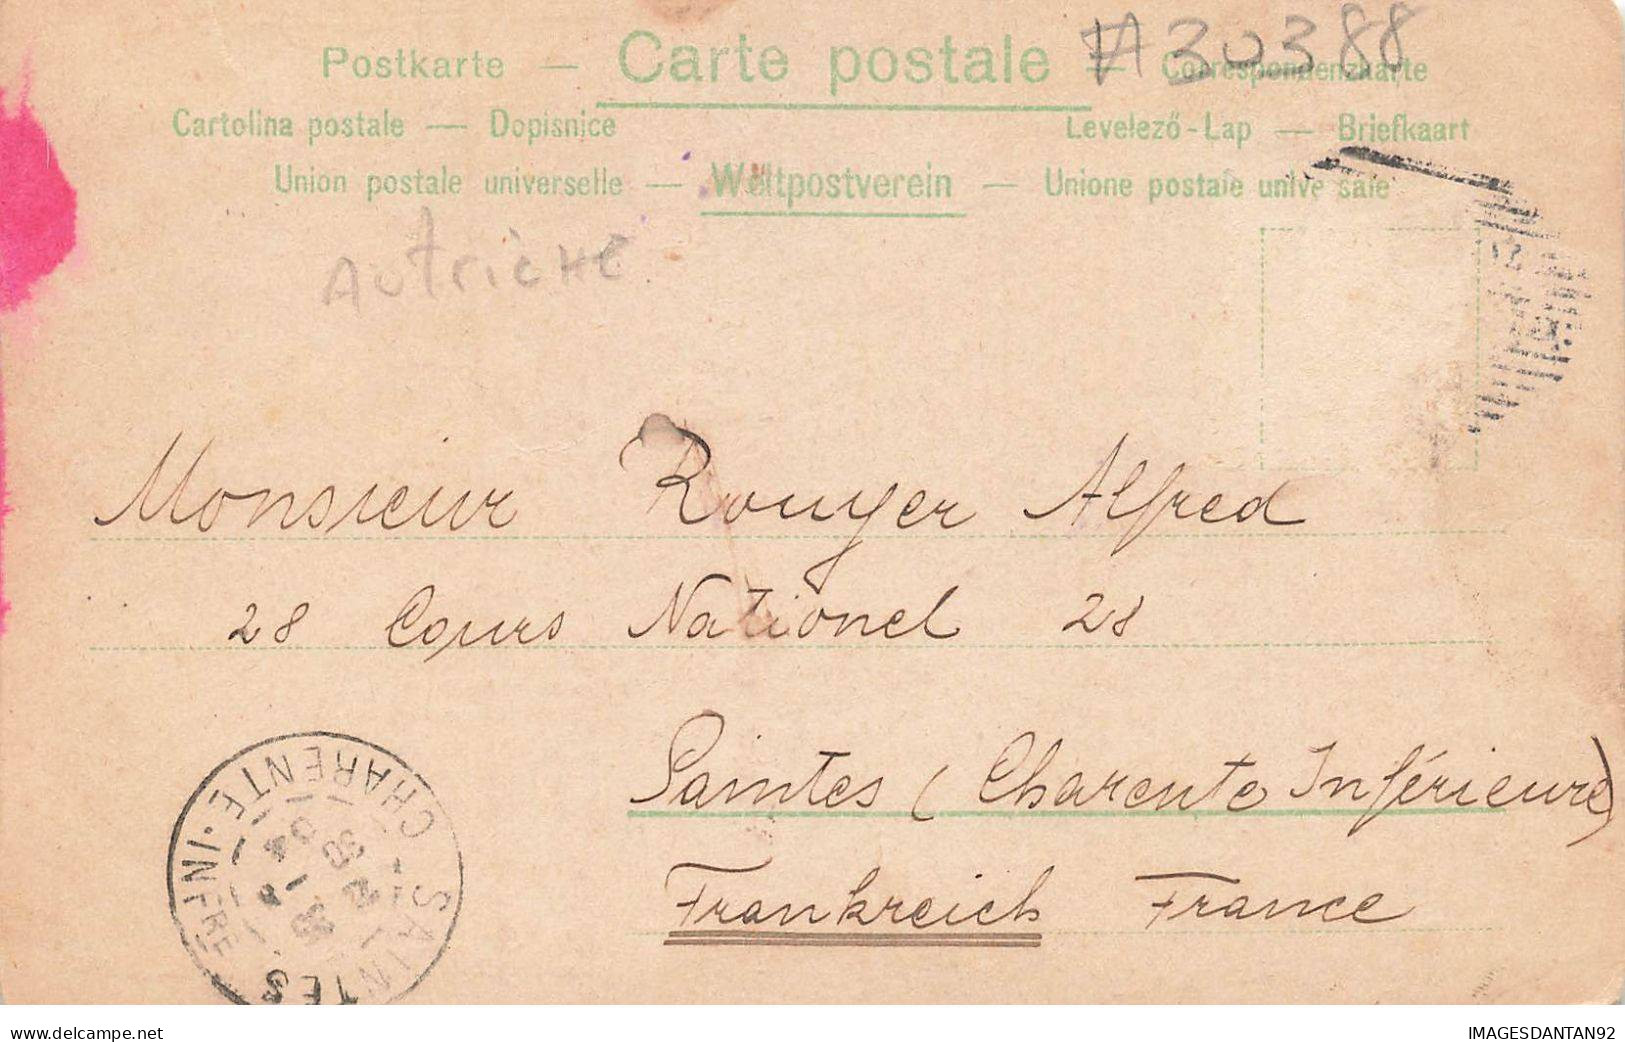 #30388
Postkarte — Carte postale — Correspondenzkarte
Cartolina postale — Dopisnice Levelező-Lap — Briefkaart
Union postale universelle — Weltpostverein — Unione postale unive sale
Autriche
Monsieur Rouyer Alfred
28 Cours Nationel 28
Saintes (Charente Inférieure)
Frankreich France
SAINTES
CHARENTE-INFRE
www.delcampe.net
IMAGESDANTAN92